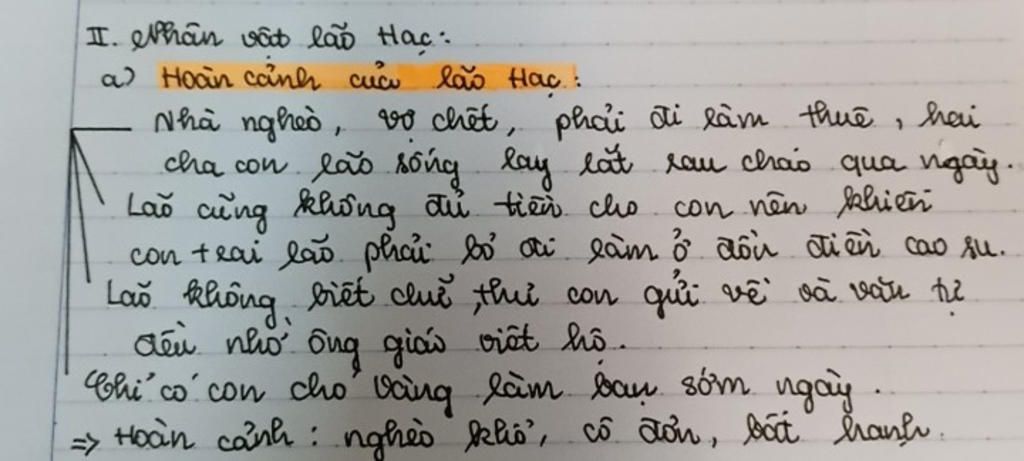 II. Nhân vật lão Hạc:
a) Hoàn cảnh của lão Hạc:
Nhà nghèo, vợ chết, phải đi làm thuê, hai
cha con lão sống lay lắt rau cháo qua ngày.
Lão cũng không đủ tiền cho con nên khiến
con trai lão phải bỏ đi làm ở đồn điền cao su.
Lão không biết chữ, thư con gửi về và văn tự
đều nhờ ông giáo viết hộ.
Chỉ có con chó Vàng làm bạn sớm ngày.
=> Hoàn cảnh: nghèo khổ, cô đơn, bất hạnh.